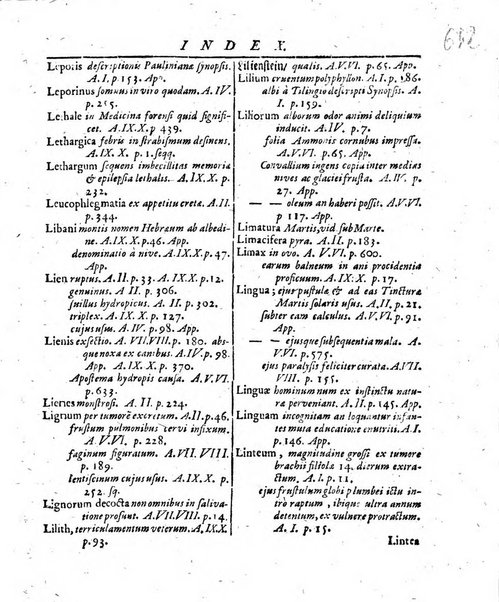 INDEX.
682
Leporis descriptionis Paulinianæ synopsis.
A. I. p. 153. App.
Leporinus somnus in viro quodam. A. IV.
p. 205.
Lethale in Medicina forensi quid signifi-
cet. A. IX. X. p 439.
Lethargica febris in strabismum desinens.
A. IX. X. p. 1. seqq.
Lethargum sequens imbecillitas memoria
& epilepsia lethalis. A. IX. X. p.
232.
Leucophlegmatia ex appetitu creta. A. II.
p. 344.
Libani montis nomen Hebraum ab albedi-
ne. A. IX. X. p. 46. App.
denominatio à nive. A. IX. X. p. 47.
App.
Lien ruptus. A. II. p. 33. A. IX. X. p. 12.
genuinus. A. II. p. 306.
suillus hydropicus. A. II. p. 302.
triplex. A. IX. X. p. 127.
cujus usus. A. IV. p. 98. App.
Lienis exsectio. A. VII. VIII. p. 180. abs-
que noxa ex canibus. A. IV. p. 98.
App. A. IX. X. p. 370.
Apostema hydropis causa. A. V. VI.
p. 633.
Lienes monstrosi. A. II. p. 224.
Lignum per tumorē excretum. A. II. p. 46.
frustum pulmonibus cervi infixum.
A. V. VI. p. 228.
faginum figuratum. A. VII. VIII.
p. 189.
lentiscinum cujus usus. A. IX. X. p.
252. sq.
Lignorum decocta non omnibus in saliva-
tione prosunt. A. VII. VIII. p. 14.
Lilith, terriculamentum veterum. A. IX. X.
p. 93.
Lilienstein/ qualis. A. V. VI. p. 65. App.
Lilium cruentum polyphyllon. A. I. p. 186.
albi à Tilingio descripti Synopsis. A.
I. p. 159.
Liliorum alborum odor animi deliquium
inducit. A. IV. p. 7.
folia Ammonis cornubus impressa.
A. V. VI. p. 65. App.
Convallium ingens copia inter medias
nives ac glaciei frusta. A. IV. p.
27. App.
— — oleum an haberi possit. A. V. VI.
p 117. App.
Limatura Martis, vid sub Marte.
Limacifera pyra. A. II. p. 183.
Limax in ovo. A. V. VI. p. 600.
earum balneum in ani procidentia
proficuum. A. IX. X. p. 17.
Lingua; ejus pustulæ & ad eas Tinctura
Martis solaris usus. A. II. p. 21.
subter eam calculus. A. V. VI. p. 91.
App.
— — ejusque subsequentia mala. A.
V. VI. p. 575.
ejus paralysis feliciter curata. A. VII.
VIII. p. 155.
Linguæ hominum num ex instinctu natu-
ra perveniant. A. II. p. 145. App.
Linguam incognitam an loquantur infan-
tes muta educatione enutriti. A. I.
p. 146. App.
Linteum, magnitudine grossi ex tumore
brachii filiolæ 14. dierum extra-
ctum. A. I. p. 15.
ejus frustulum globi plumbei ictu in-
trò raptum, ibique ultra annum
detentum, ex vulnere protractum.
A. I. p. 15.
Lintea